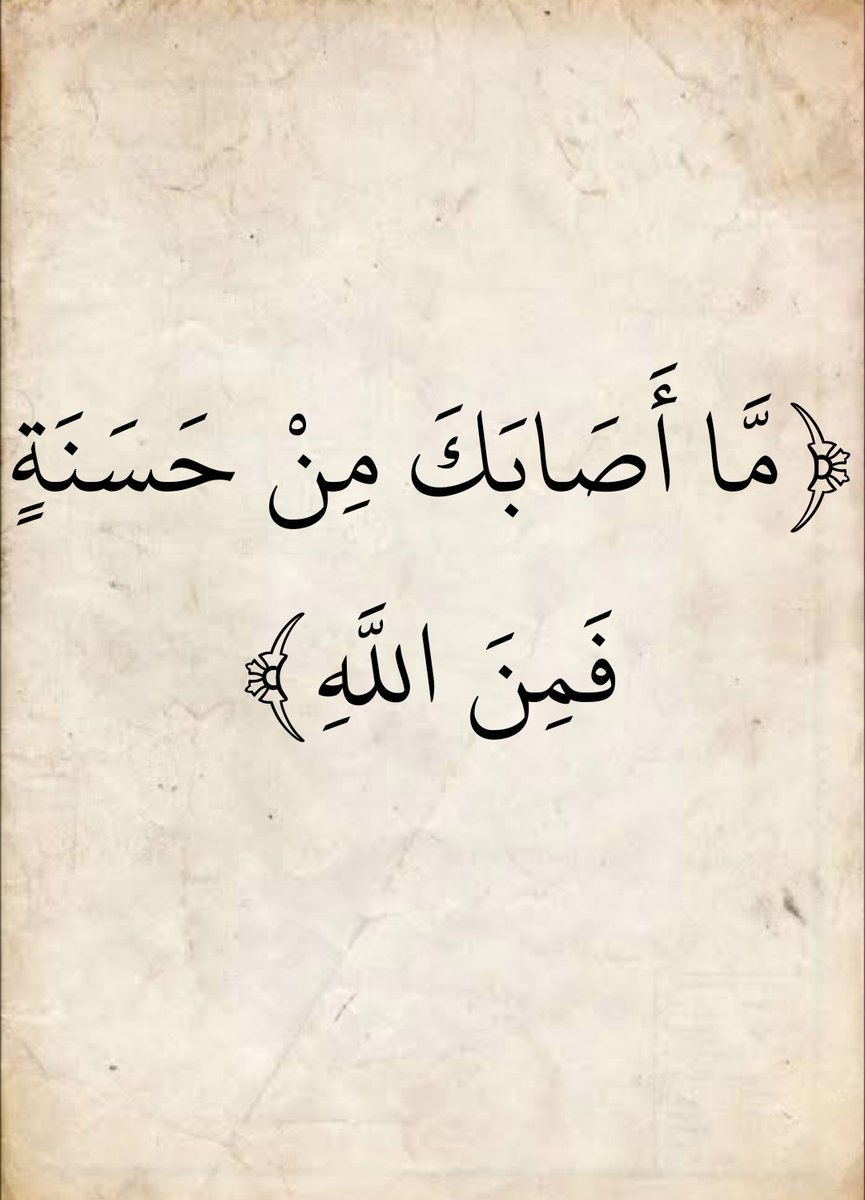 ﴿مَّا أَصَابَكَ مِنْ حَسَنَةٍ
فَمِنَ اللَّهِ﴾